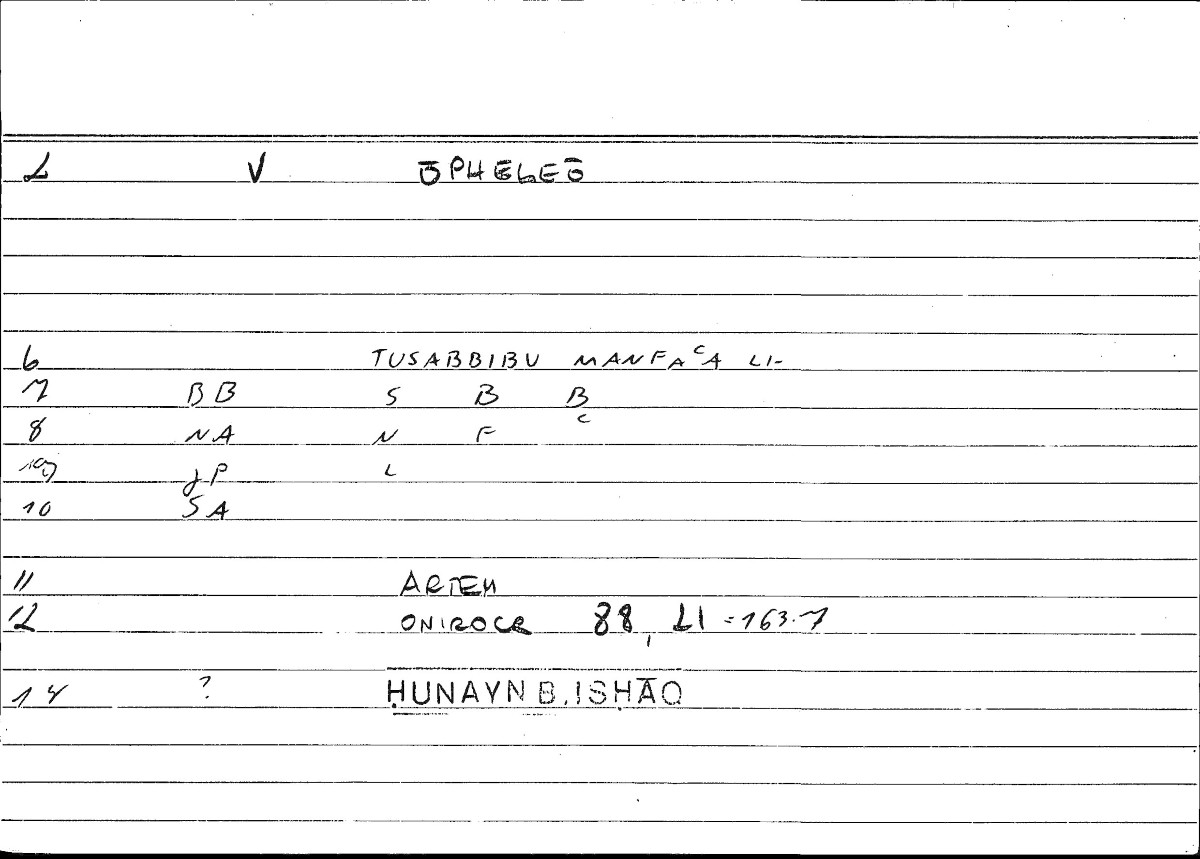 2 V ŌPHELEŌ
6 TUSABBIBU MANFAᶜA LI-
7 BB S B B
8 NA N F ᶜ
JP L
10 SA
11 ARTEM
12 ONIROCR 88, 21 = 163.7
14 ? ḤUNAYN B. ISḤĀQ